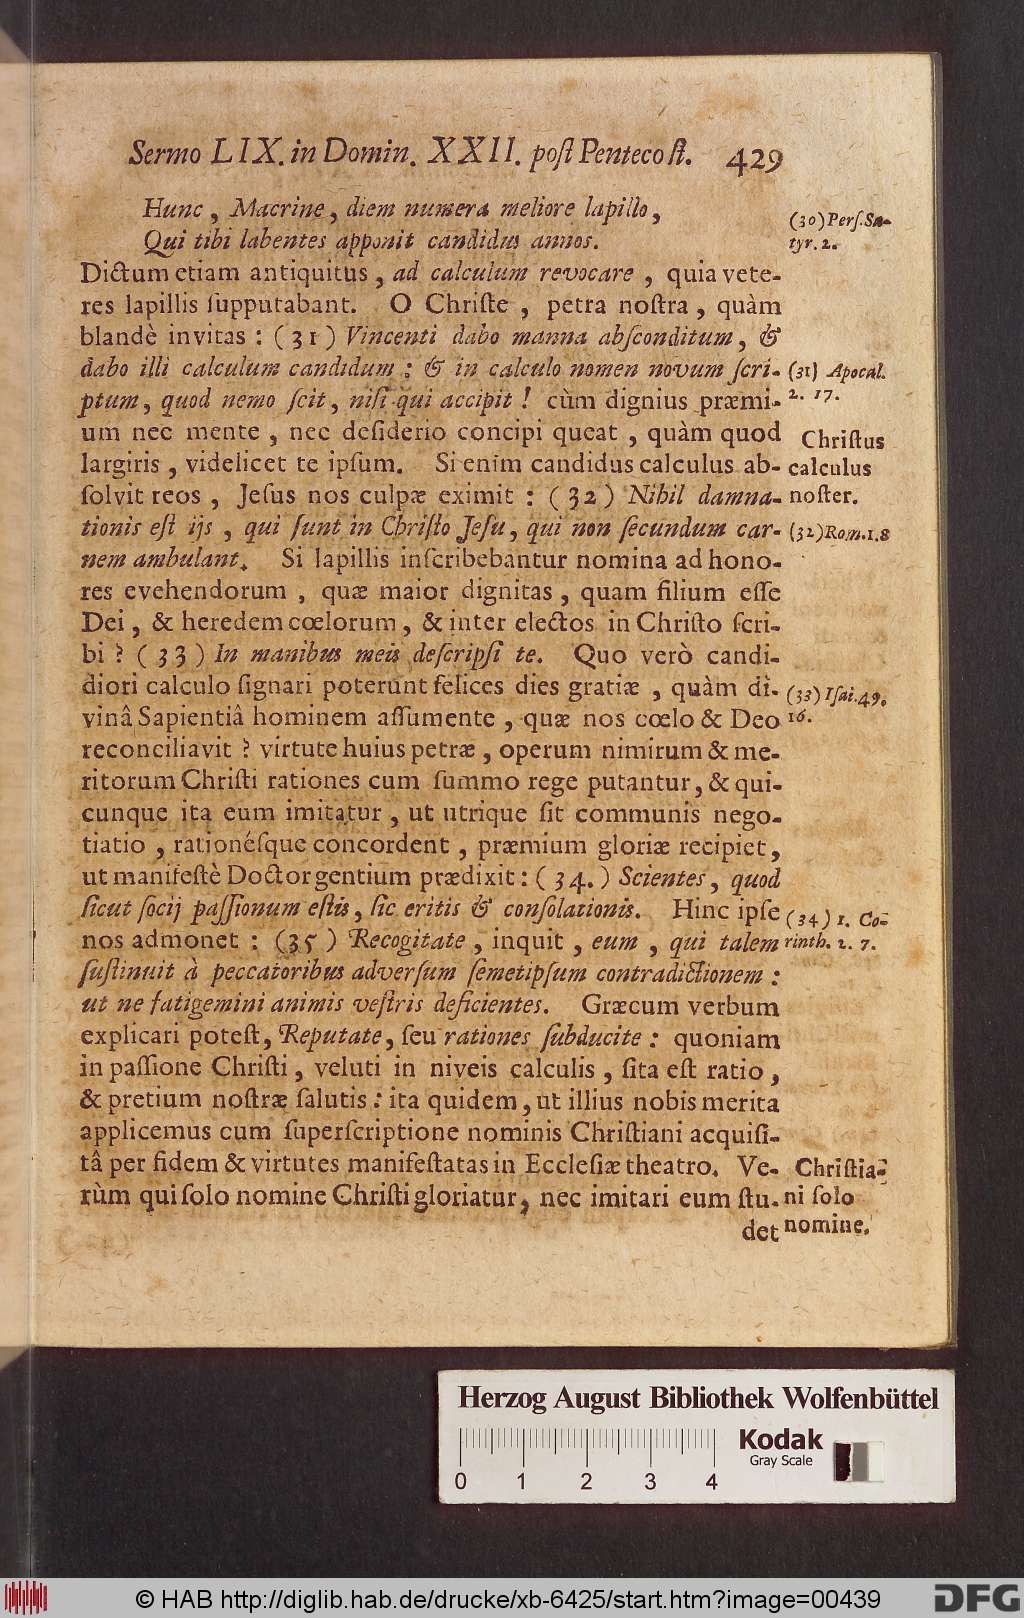 Sermo LIX. in Domin. XXII. poſt Pentecoſt. 429
Hunc, Macrine, diem numera meliore lapillo,
Qui tibi labentes apponit candidus annos.
(30) Perſ. Sa-
tyr. 2.
Dictum etiam antiquitus, ad calculum revocare, quia vete-
res lapillis ſupputabant. O Chriſte, petra noſtra, quàm
blandè invitas: (31) Vincenti dabo manna abſconditum, &
dabo illi calculum candidum: & in calculo nomen novum ſcri-
(31) Apocal.
2. 17.
ptum, quod nemo ſcit, niſi qui accipit! cùm dignius præmi-
um nec mente, nec deſiderio concipi queat, quàm quod
largiris, videlicet te ipſum. Si enim candidus calculus ab-
Chriſtus
calculus
noſter.
ſolvit reos, Jeſus nos culpæ eximit: (32) Nihil damna-
tionis eſt ijs, qui ſunt in Chriſto Jeſu, qui non ſecundum car-
(32) Rom. 1. 8
nem ambulant. Si lapillis inſcribebantur nomina ad hono-
res evehendorum, quæ maior dignitas, quam filium eſſe
Dei, & heredem cœlorum, & inter electos in Chriſto ſcri-
bi? (33) In manibus meis deſcripſi te. Quo verò candi-
diori calculo ſignari poterunt felices dies gratiæ, quàm di-
(33) Iſai. 49.
16.
vinâ Sapientiâ hominem aſſumente, quæ nos cœlo & Deo
reconciliavit? virtute huius petræ, operum nimirum & me-
ritorum Chriſti rationes cum ſummo rege putantur, & qui-
cunque ita eum imitatur, ut utrique ſit communis nego-
tiatio, rationéſque concordent, præmium gloriæ recipiet,
ut manifeſtè Doctor gentium prædixit: (34.) Scientes, quod
ſicut ſocij paſſionum eſtis, ſic eritis & conſolationis. Hinc ipſe
(34) 1. Co-
rinth. 2. 7.
nos admonet: (35) Recogitate, inquit, eum, qui talem
ſuſtinuit à peccatoribus adverſum ſemetipſum contradictionem:
ut ne fatigemini animis veſtris deficientes. Græcum verbum
explicari poteſt, Reputate, ſeu rationes ſubducite: quoniam
in paſſione Chriſti, veluti in niveis calculis, ſita eſt ratio,
& pretium noſtræ ſalutis: ita quidem, ut illius nobis merita
applicemus cum ſuperſcriptione nominis Chriſtiani acquiſi-
tâ per fidem & virtutes manifeſtatas in Eccleſiæ theatro. Ve-
rùm qui ſolo nomine Chriſti gloriatur, nec imitari eum ſtu-
Chriſtia-
ni ſolo
nomine.
det
Herzog August Bibliothek Wolfenbüttel
Kodak
Gray Scale
0 1 2 3 4
© HAB http://diglib.hab.de/drucke/xb-6425/start.htm?image=00439
DFG